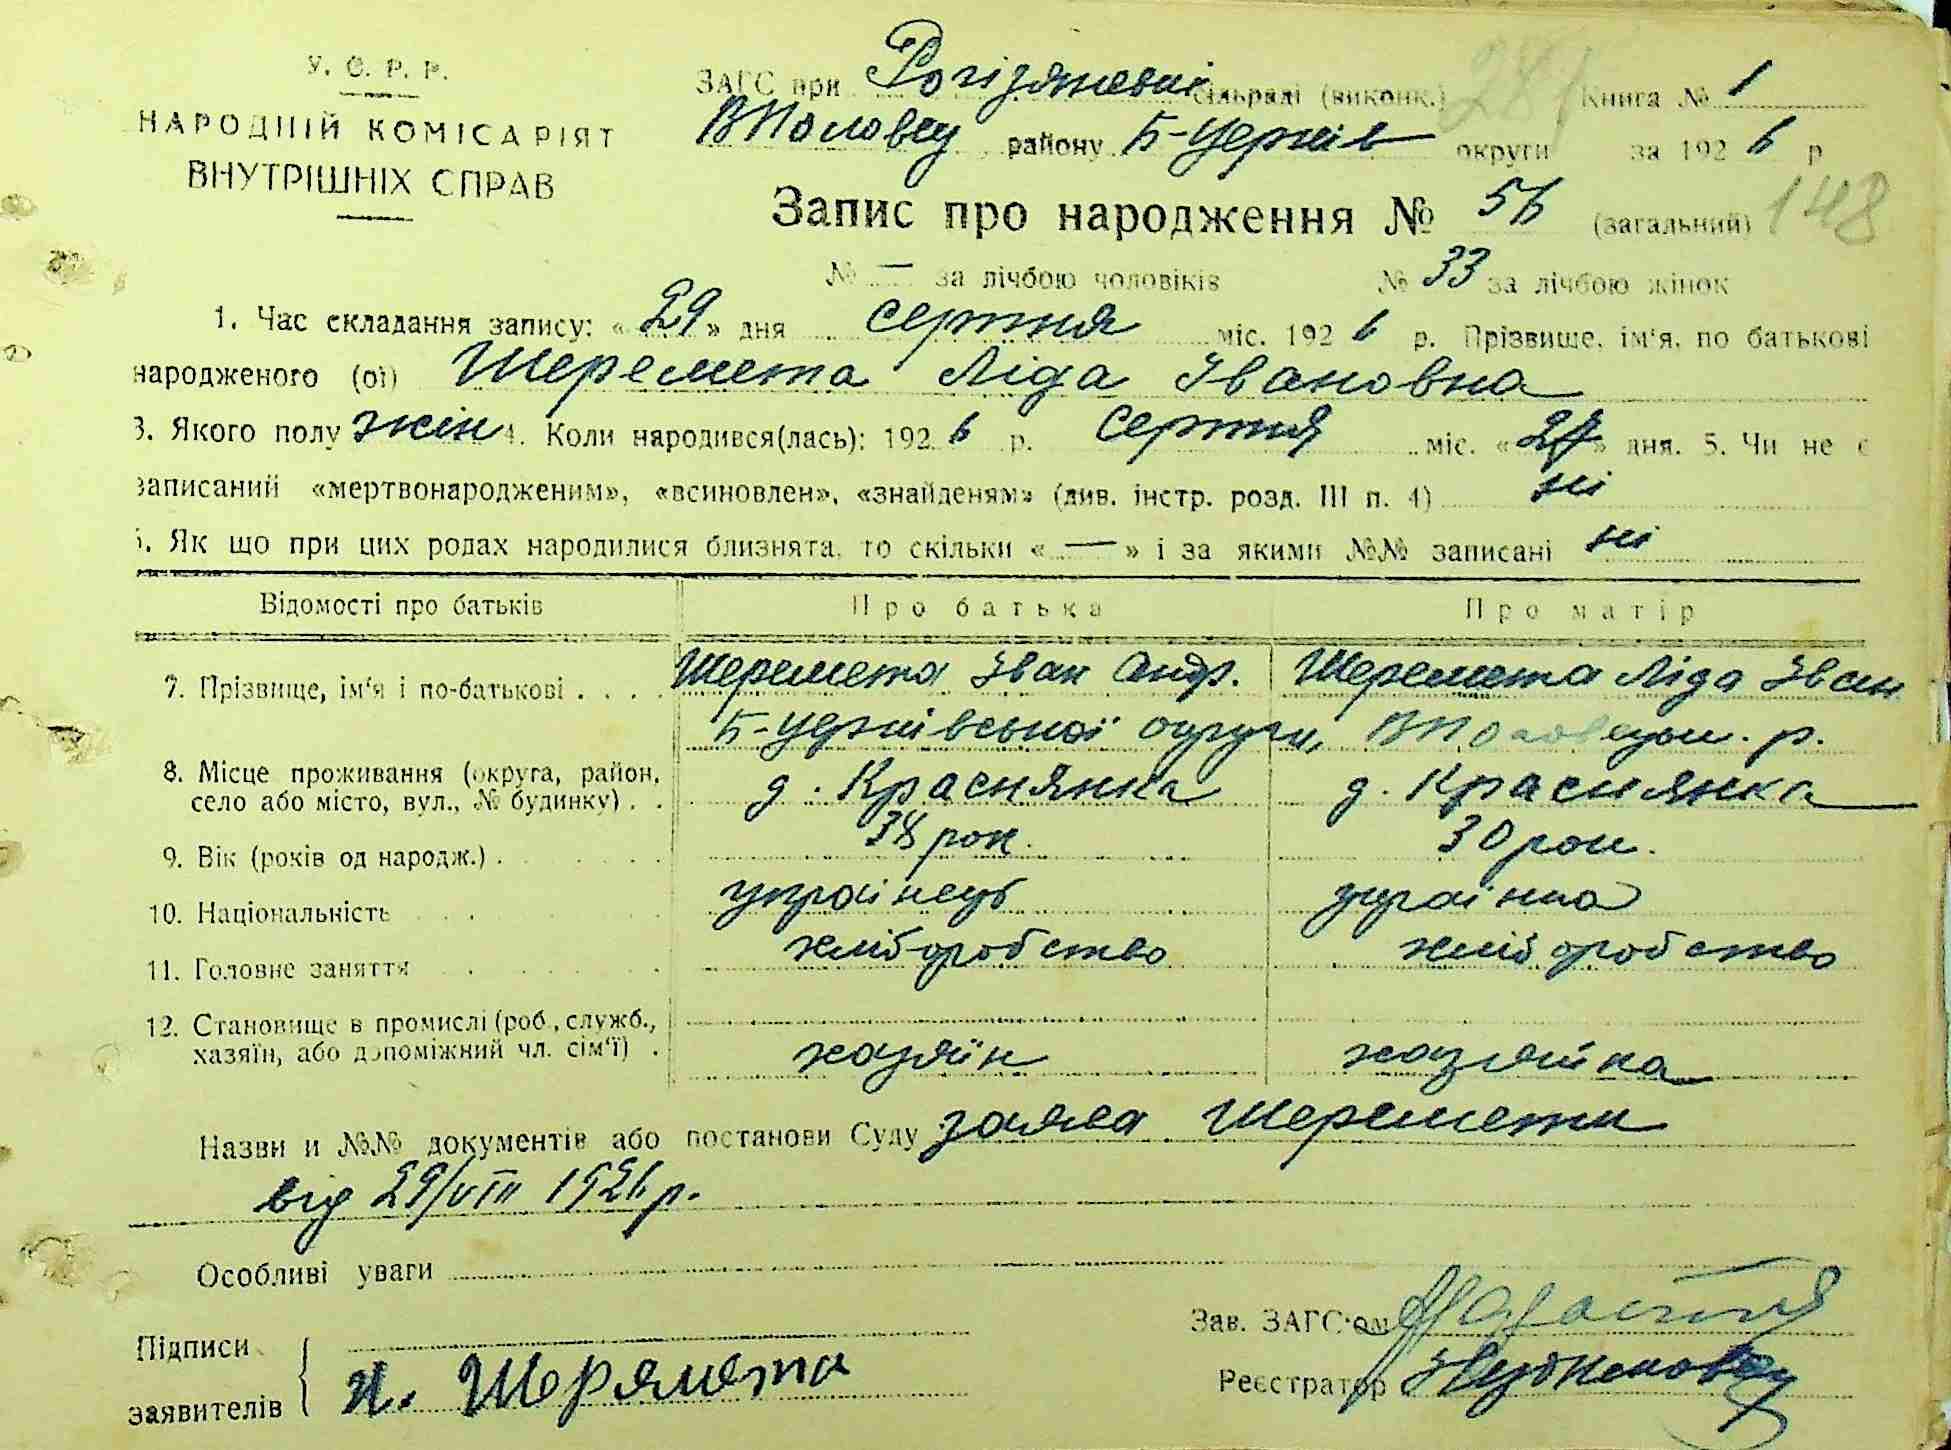 У. С. Р. Р.
НАРОДНІЙ КОМІСАРІЯТ
ВНУТРІШНІХ СПРАВ
ЗАГС при Рогізянській сільраді (виконк.) 281 Книга № 1
ВПоловец району Б-Церків округи за 1926 р
Запис про народження № 56 (загальний) 148
№ — за лічбою чоловіків № 33 за лічбою жінок
1. Час складання запису: «29» дня серпня міс. 1926 р. Прізвище, ім'я, по батькові
народженого (ої) Шеремета Ліда Івановна
3. Якого полу жін 4. Коли народився(лась): 1926 р. серпня міс. «27» дня. 5. Чи не є
записаний «мертвонародженим», «всиновлен», «знайденям» (див. інстр. розд. III п. 4) ні
6. Як що при цих родах народилися близнята, то скільки « — » і за якими №№ записані ні
Відомості про батьків Про батька Про матір
7. Прізвище, ім'я і по-батькові . . . . Шеремета Іван Андр. Шеремета Ліда Іван
Б-Церківської округи, ВПоловецьк. р.
8. Місце проживання (округа, район, село або місто, вул., № будинку) . . д. Краснянка д. Краснянка
9. Вік (років од народж.) . 38 рок. 30 рок.
10. Національність українець українка
11. Головне заняття хліборобство хліборобство
12. Становище в промислі (роб., служб., хазяїн, або допоміжний чл. сім'ї) . хазяїн хазяйка
Назви и №№ документів або постанови Суду заява Шеремети
від 29/VIII 1926 р.
Особливі уваги
Зав. ЗАГС'ом
Підписи
заявителів и. Шерямета
Реєстратор